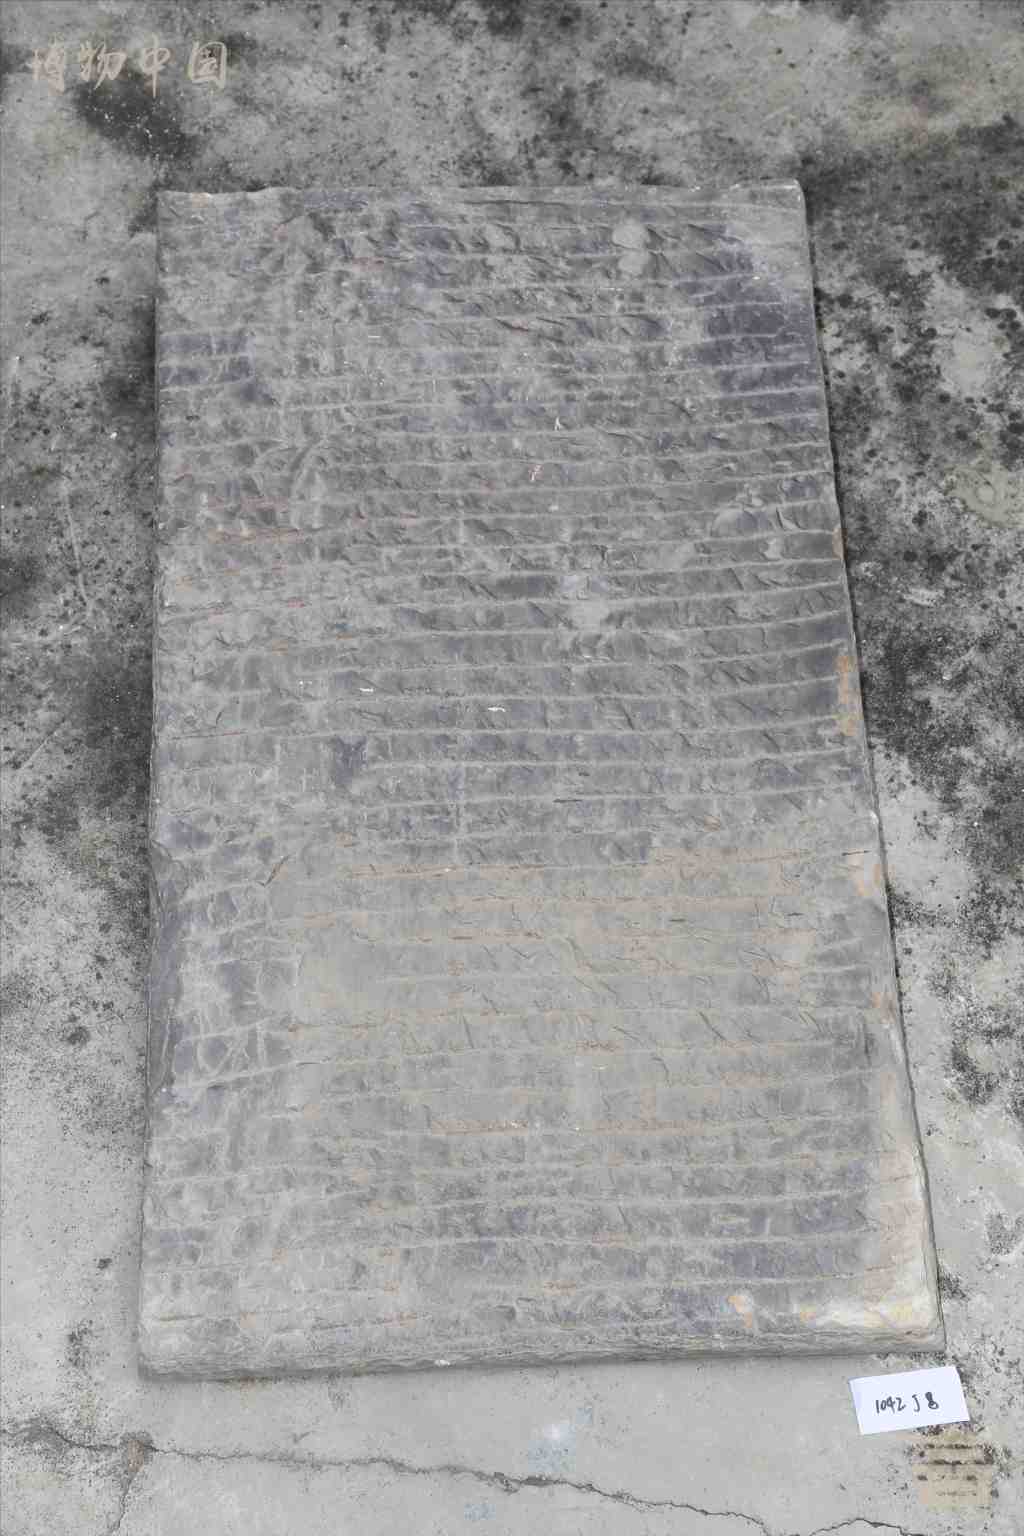 博物中国
1042 J8